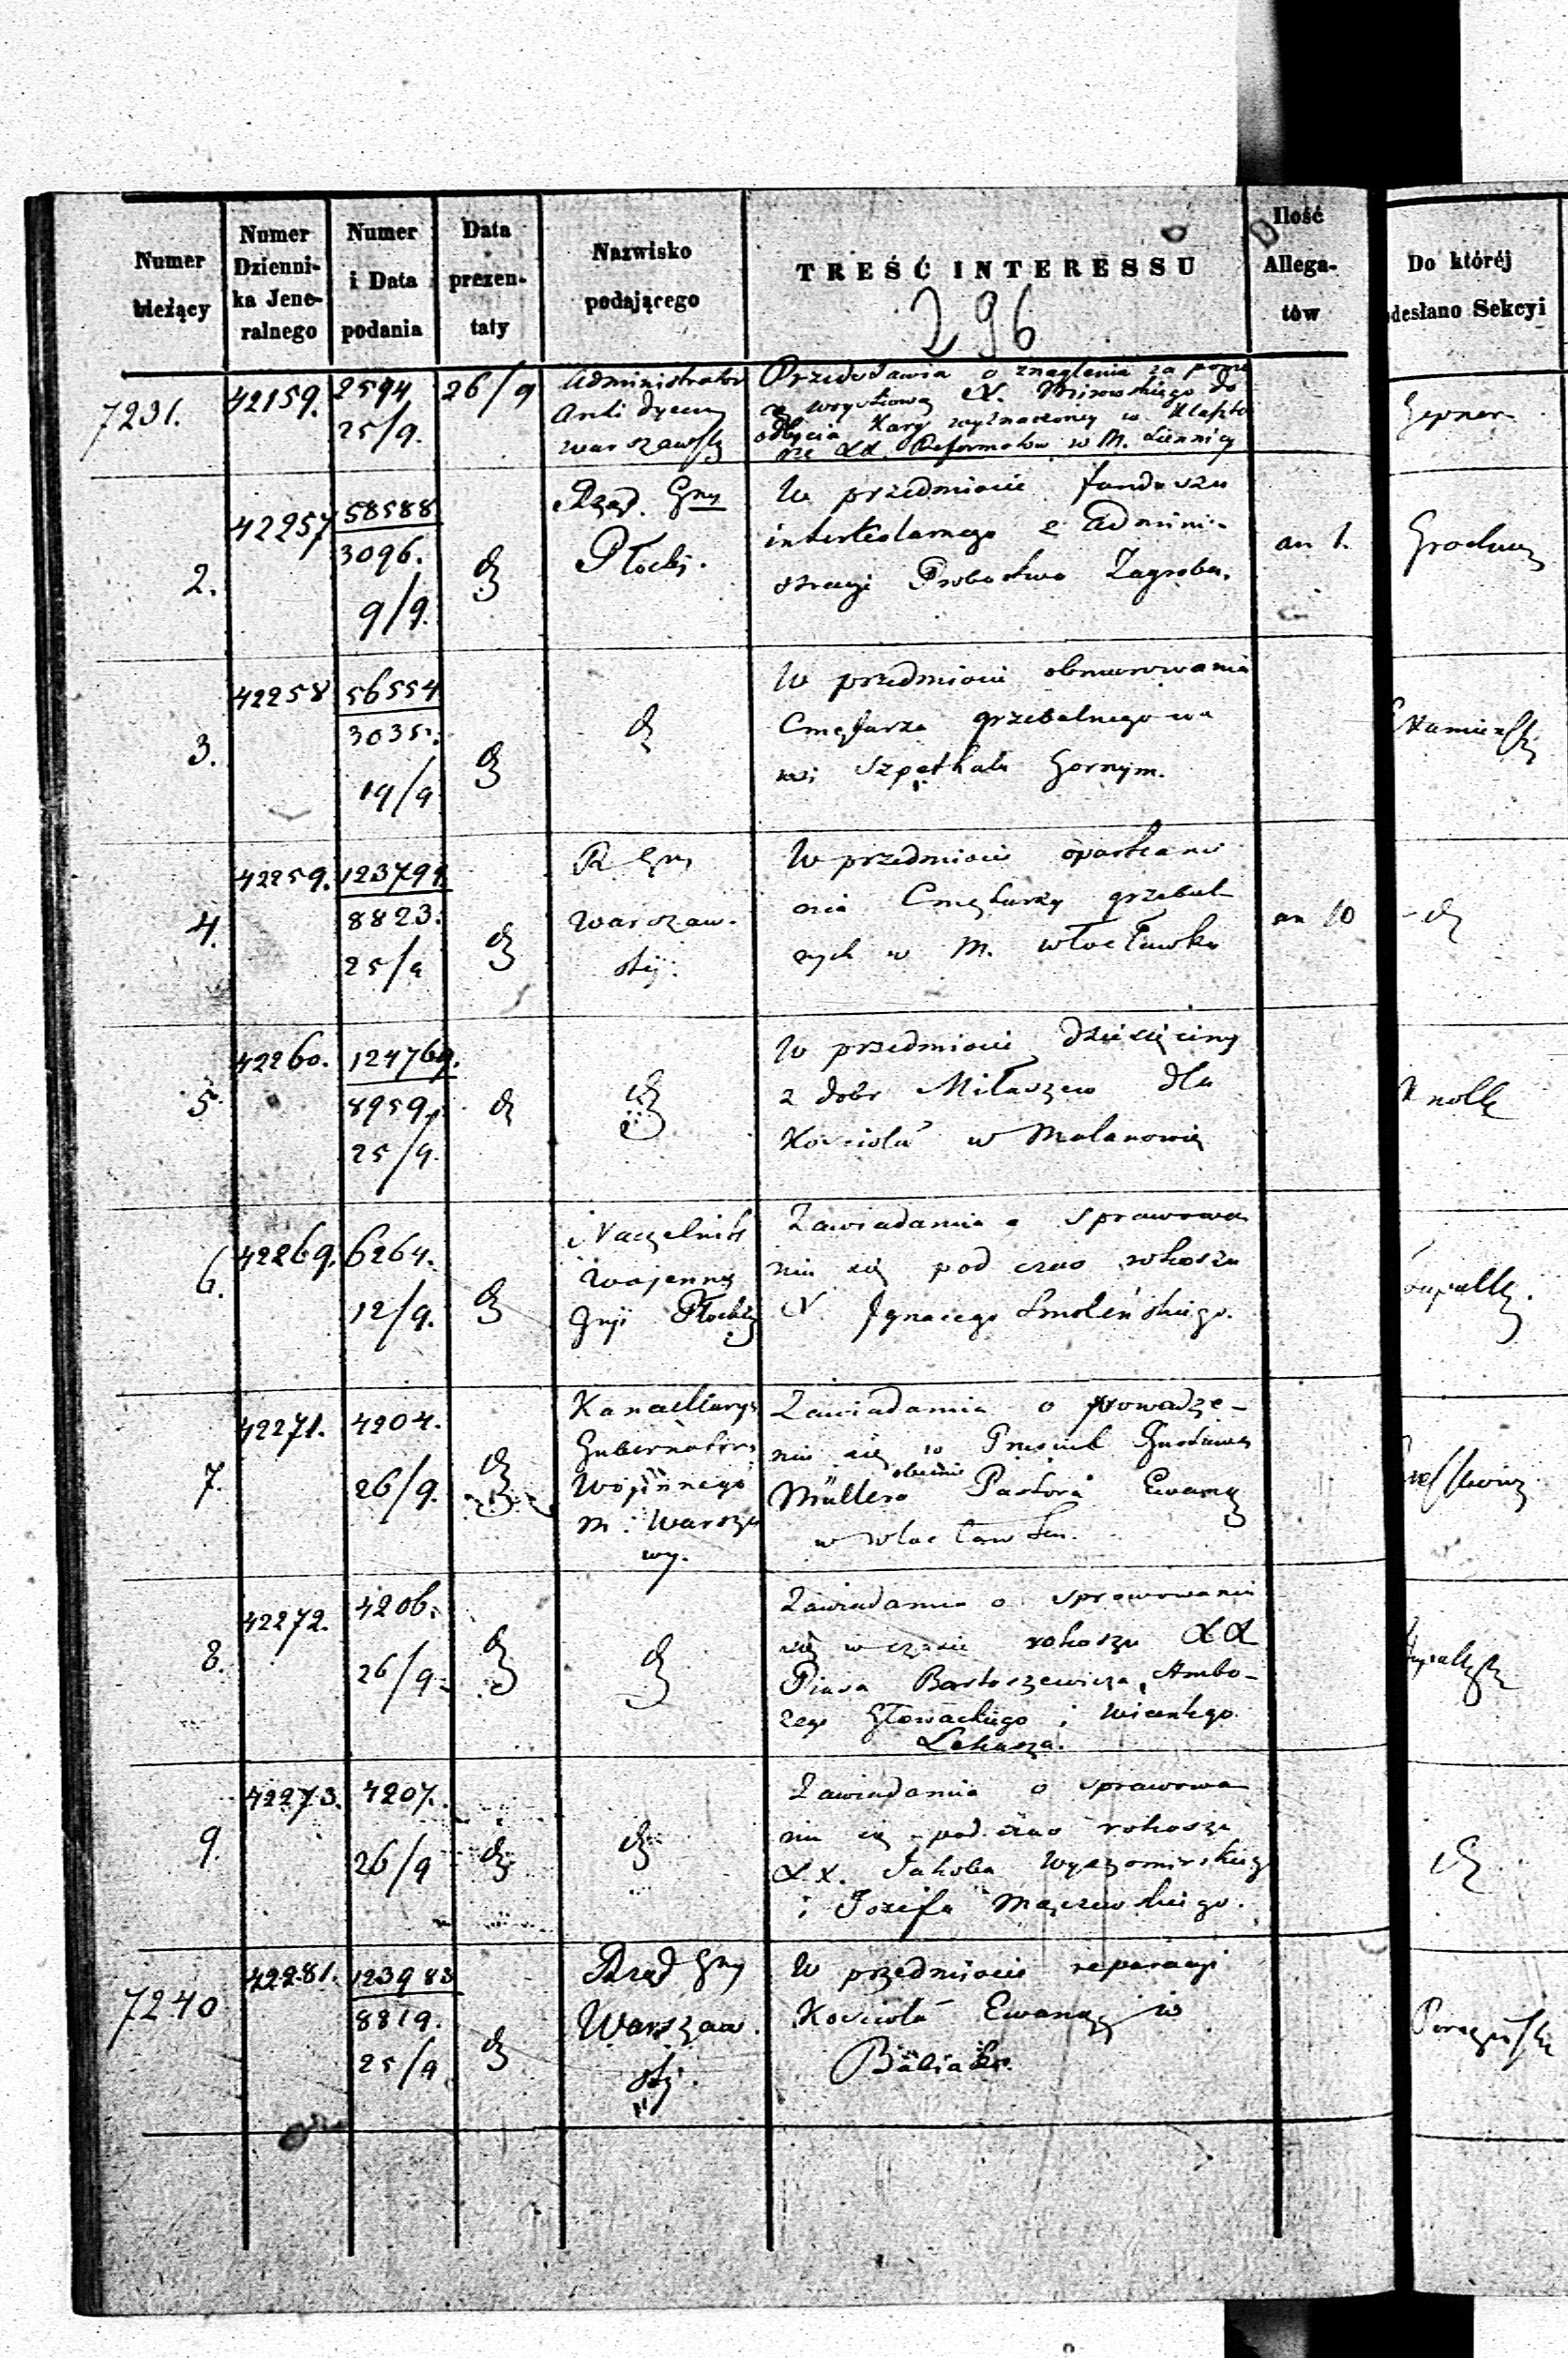 Numer bieżący
Numer Dzienni-ka Jene-ralnego
Numer i Data podania
Data prezen-taty
Nazwisko podającego
TREŚĆ INTERESSU
Ilość Allega-tów
Do któréj
desłano Sekcyi
296
7231. 42159. 2594 25/9. 26/9
Administrator
Warszawski
Przedstawia o znaglenie za pomo
cą wojskową X. Mirowskiego do
odbycia Kary wyznaczoney w Klaszto
rze XX. Reformatow w M. Liennicy
2. 42257 58588 3096. 9/9.
Rząd. Gny
Płocki.
W przedmiocie funduszu
interkalarnego z Admini-
stracyi Probostwa Zagroba.
an 1.
3. 42258 56554 3035. 19/9
W przedmiocie obmurowania
Cmętarza grzebalnego we
wsi Szpethalu Gornym.
4. 42259. 123799 8823. 25/9
R Gny
Warszaw-
ski.
W przedmiocie oparkani
nia Cmętarzy grzebal-
nych w M. Włocławku
an 10
5. 42260. 124769. 8959. 25/9.
W przedmiocie dziesięciny
z dobr Miłaczew dla
Kościoła w Malanowie
Knoll
6. 42269. 6264. 12/9.
Naczelnik
Wojenny
Gnji Płockiej
Zawiadamia o sprawowa
niu się pod czas rokoszu
X Ignacego Smoleńskiego.
7. 42271. 4204. 26/9.
Kancellarya
Gubernatora
Wojennego
m. Warsza
wy.
Zawiadamia o prowadze-
niu się w Gustawa
Müllera obecnie Pastora Ewang
w Włocławku.
8. 42272. 4206. 26/9.
Zawiadamia o sprawowaniu
się w czasie rokoszu XX
Piusa Bartoszewicza, Ambro-
zego Głowackiego i Wicentego
Lekasza.
9. 42273. 4207. 26/9
Zawiadamia o sprawowa
niu się pod czas rokoszu
XX. Jakoba
i Jozefa Mączewskiego.
7240 42281. 123983 8819. 25/9
Rząd Gny
Warszaw.
ski.
W przedmiocie reparacyi
Kościoła Ewang w